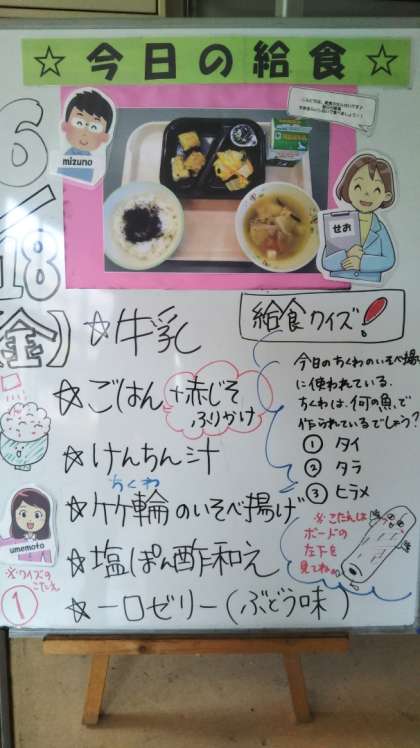 ☆今日の給食☆
mizuno
せお
6/18(金)
☆牛乳
☆ごはん+赤じそふりかけ
☆けんちん汁
ちくわ
☆竹輪のいそべ揚げ
☆塩ぽん酢和え
☆一口ゼリー(ぶどう味)
給食クイズ!
今日のちくわのいそべ揚
に使われている、
ちくわは、何の魚で
作られているでしょう?
① タイ
② タラ
③ ヒラメ
※こたえは
ボードの
左下を
見てね。
umemoto
※クイズの
こたえ
①